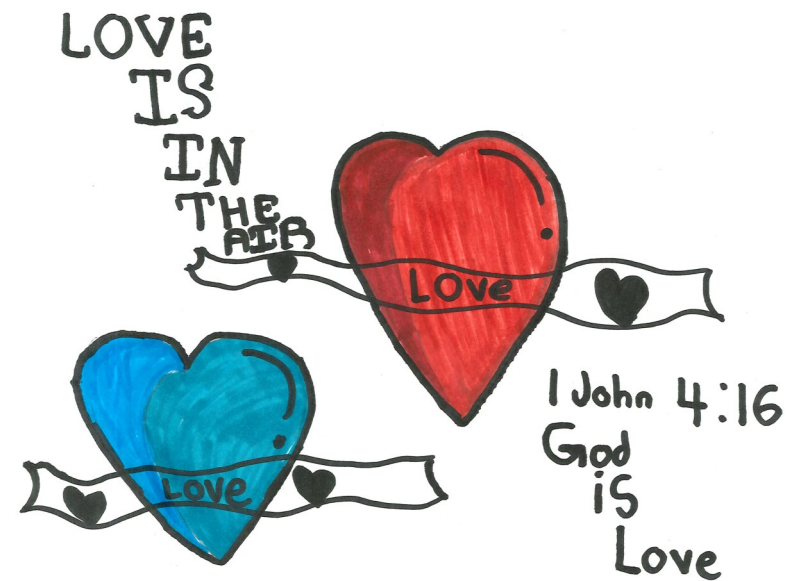 LOVE
IS
IN
THE
AIR
LOVe
LOVe
1 John 4:16
God
is
Love